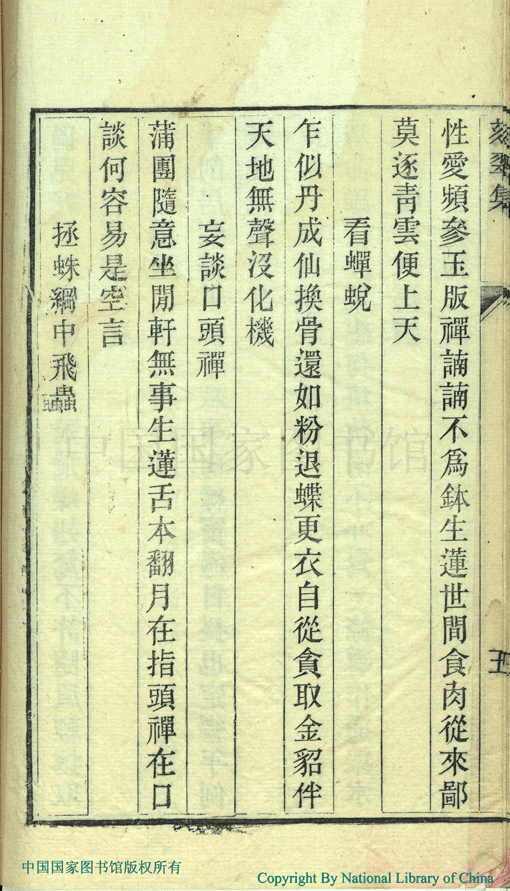 性愛頻參玉版禪諵諵不爲鉢生蓮世間食肉從來鄙
莫逐靑雲便上天
看蟬蛻
乍似丹成仙換骨還如粉退蝶更衣自從貪取金貂伴
天地無聲沒化機
妄談口頭禪
蒲團隨意坐閒軒無事生蓮舌本翻月在指頭禪在口
談何容易是空言
拯蛛網中飛蟲
五
中国国家图书馆
中国国家图书馆版权所有
Copyright By National Library of China